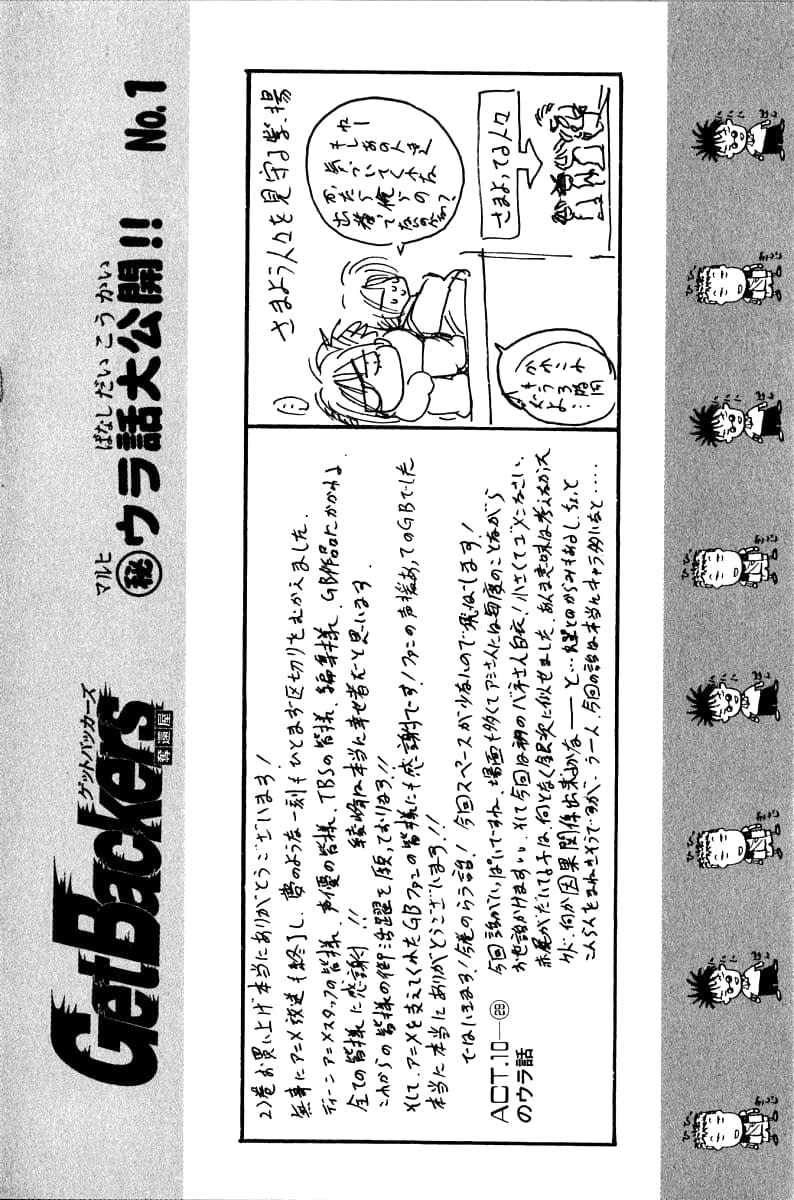 ゲットバッカーズ
GetBackers
奪還屋
マルヒ ばなし だい こう かい
㊙ウラ話大公開!! No.1
21巻お買い上げ本当にありがとうございます!
無事にアニメ放送も終了し、夢のような一刻もひとまず区切りをむかえました。
ディーンアニメスタッフの皆様、声優の皆様、TBSの皆様、編集様、GB作品にかかわる、
全ての皆様に感謝!! 綾峰は本当に幸せ者だと思います。
これからの皆様の御活躍を願っております!!
そして、アニメを支えてくれたGBファンの皆様にも感謝です!ファンの声援あってのGBでした
本当に本当にありがとうございます!!
ではいきます!今巻のウラ話! 今回スペースが少ないので飛ばします!
ACT.10—㉙
のウラ話
今回話がいっぱいですね、場面も多くてアシさんには毎度のことながら
お世話かけますい。そして今回は初のバネさん白衣!小さくてゴメンなさい。
赤屍がだいてる子は、何となく銀次に似せました。あんま意味は考えがス
けど何か因果関係出来るかな——と…
こんら人をまねきそうですが、うーん、今回の話は本当にキャラ多いなと….
さまよう人々を見守る柴・揚
もしかしてあの人達
気づいてくれな
かったら俺らの
出番ってないのか?
さまよってる人々